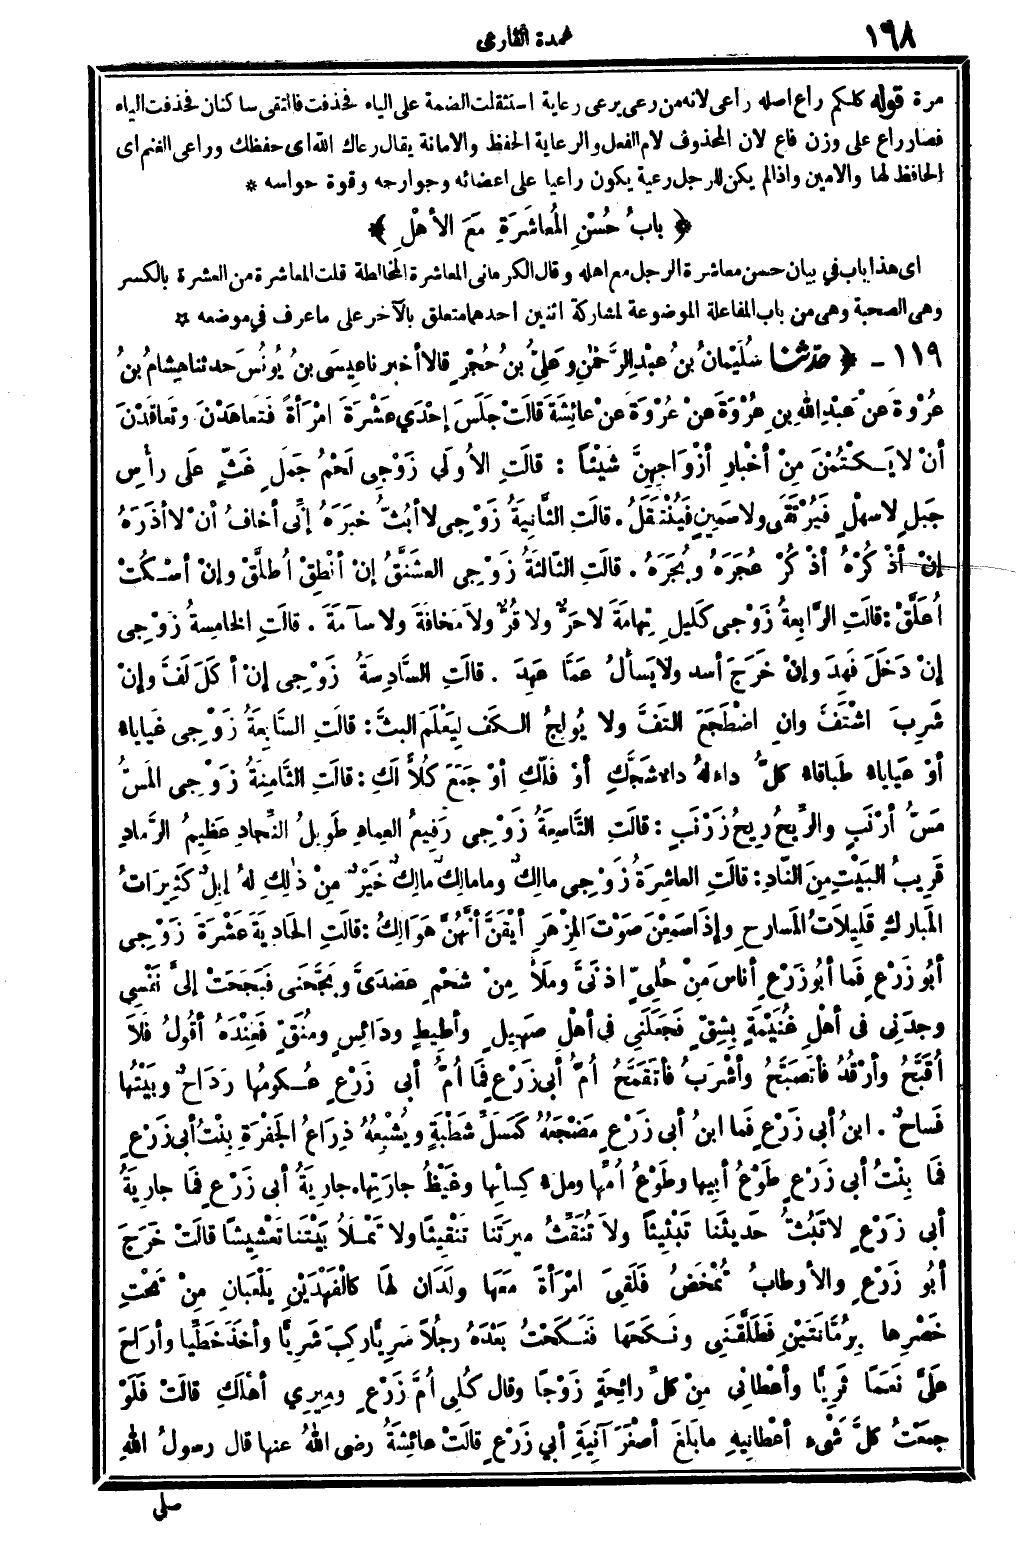 ١٩٨
عمدة القارى
مرة قوله كلكم راع اصله راعى لانه من رعى يرعى رعاية استثقلت الضمة على الياء فحذفت فالتقى ساكنان فحذفت الياء
فصار راع على وزن فاع لان المحذوف لام الفعل والرعاية الحفظ والامانة يقال رعاك الله اى حفظك وراعى الغنم اى
الحافظ لها والامين واذا لم يكن للرجل رعية يكون راعيا على اعضائه وجوارحه وقوة حواسه *
﴿ بابُ حُسْنِ المُعاشَرَةِ مَعَ الأهْلِ ﴾
اى هذا باب في بيان حسن معاشرة الرجل مع اهله وقال الكرمانى المعاشرة المخالطة قلت المعاشرة من العشرة بالكسر
وهى الصحبة وهى من باب المفاعلة الموضوعة لمشاركة اثنين احدهما متعلق بالآخر على ما عرف في موضعه *
١١٩ ـ ﴿ حدثنا سُلَيْمانُ بنُ عبْدِ الرَّحْمٰنِ وعَلِيُّ بنُ حُجْرٍ قالا أخبرنا عِيسَى بنُ يُونُسَ حدثنا هِشامُ بنُ
عُرْوةَ عنْ عَبْدِ اللهِ بنِ عُرْوَةَ عنْ عُرْوَةَ عنْ عائِشَةَ قالَتْ جَلَسَ إحْدَي عَشْرَةَ امْرَأةً فَتَعاهَدْنَ وتَعاقَدْنَ
أنْ لا يَكْتُمْنَ مِنْ أخْبارِ أزْوَاجِهِنَّ شَيْئاً : قالَتِ الأُولَي زَوْجِي لَحْمُ جَمَلٍ غَثٍّ عَلَى رأْسِ
جَبَلٍ لا سهْلٍ فَيُرْتَقَى ولا سَمِينٍ فَيُنْتَقَلُ . قالَتِ الثَّانِيَةُ زَوْجِي لا أبُثُّ خبَرَهُ إنِّى أخافُ أنْ لا أذَرَهُ
إنْ أذْكُرْهُ أذْكُرْ عُجَرَهُ وبُجَرَهُ . قالَتِ الثَّالثَةُ زَوْجِى العشَنَّقُ إنْ أنْطِقْ أُطلَّقْ وإنْ أسْكُتْ
أُعَلَّقْ : قالَتِ الرَّابِعةُ زَوْجِى كَلَيْلِ تِهامَةَ لا حَرٌّ ولا قُرٌّ ولاَ مَخافَةَ ولا سآمَةَ . قالَتِ الخامِسةُ زَوْجِى
إنْ دَخَلَ فَهِدَ وإنْ خَرَجَ أسد ولا يَسألُ عَمَّا عَهِدَ . قالَتِ السَّادِسَةُ زَوْجِى إنْ أكَلَ لَفَّ وإنْ
شَرِبَ اشْتَفَّ وانِ اضْطَجَعَ التَفَّ ولا يُولِجُ الكَف لِيَعْلَمَ البثَّ : قالَتِ السَّابِعَةُ زَوْجِى غَياياء
أوْ عَياياء طَباقاء كلُّ داء لهُ داء شَجَّكِ أوْ فَلَّكِ أوْ جَمَعَ كُلاًّ لَكِ : قالَتِ الثَّامِنَةُ زَوْجِى المَسُّ
مَسُّ أرْنَبٍ والرِّيحُ رِيحُ زَرْنَبٍ : قالَتِ التَّاسِعَةُ زَوْجِى رَفِيعُ العِمادِ طَوِيلُ النِّجادِ عَظِيمُ الرَّمادِ
قَرِيبُ البَيْتِ مِنَ النَّادِ : قالَتِ العاشِرَةُ زَوْجِى مالِكٌ وما مالِكٌ مالِكٌ خَيْرٌ مِنْ ذٰلِكِ لهُ إبِلٌ كَثِيرَاتُ
المَبارِكِ قَلِيلاَتُ المَسارِحِ وإذَا سَمِعْنَ صَوْتَ المِزْهَرِ أيْقَنَّ أنَّهُنَّ هَوَالِكُ : قالَتِ الحَادِيةَ عَشْرَةَ زَوْجِى
أبُو زَرْعٍ فَما أبُو زَرْعٍ أناسَ مَنْ حُلِيّ اذنَىَّ وملَأَ مِنْ شَحْمٍ عَضدَىَّ وبجَّحَنى فَبَجَحَتْ إلىَّ نَفْسِي
وجدَنِى فى أهْلِ غُنَيْمَةٍ بِشِقٍّ فَجَعَلَنِي فى أهْلِ صَهِيلٍ وأطِيطٍ ودَائِسٍ ومُنَقٍّ فَعِنْدَهُ أقُولُ فَلاَ
أُقَبَّحُ وأرْقُدُ فأتَصَبَّحُ وأشْرَبُ فأتَقَمَّحُ أُمُّ أبى زَرْعٍ فَما أمُّ أبى زَرْعٍ عُكومُها رَدَاحٌ وبَيْتُها
فَساحٌ . ابنُ أبى زَرْعٍ فَما ابنُ أبى زَرْعٍ مَضْجَعُهُ كَمَسَلِّ شَطْبَةٍ ويُشْبِعُهُ ذِرَاعُ الجَفْرَةِ بِنْتُ أبى زَرْعٍ
فَما بِنْتُ أبى زَرْعٍ طَوْعُ أبِيها وطَوْعُ أُمِّها وملء كِسائِها وغَيْظُ جارَتِها . جارِيَةُ أبى زَرْعٍ فَما جارِيةُ
أبى زَرْعٍ لا تَبُثُّ حدِيثَنا تَبْثِيثاً ولاَ تُنَقِّثُ مِيرَتَنا تَنْقِيثًا ولا تَمْلأ بَيْتَنا تَعْشِيشًا قالَتْ خَرَجَ
أبُو زَرْعٍ والأوطابُ تُمْخَضُ فَلَقِىَ امْرَأةً مَعَها ولَدَان لهَا كالفَهْدَيْنِ يَلْعَبانِ مِنْ تَحْتِ
خَصْرِها بِرُمَّانَتَيْنِ فَطَلَّقَنِى ونَكَحَها فَنَكَحْتُ بَعْدَهُ رجُلاً سَرِيًّا ركِبَ شَرِيًّا وأخَذَ خَطِّيا وأرَاحَ
علَىَّ نَعَماً ثَرِيًّا وأعْطانِى مِنْ كلِّ رائِحَةٍ زَوْجًا وقال كُلِى أُمَّ زَرْعٍ ومِيرِي أهْلَكِ قالَتْ فَلَوْ
جمَعْتُ كلَّ شَىْء أعْطانِيهِ ما بَلَغَ أصْغَرَ آنِيَةِ أبي زَرْعٍ قالَتْ عائِشَةُ رضى اللهُ عنها قال رسولُ اللهِ
صلى